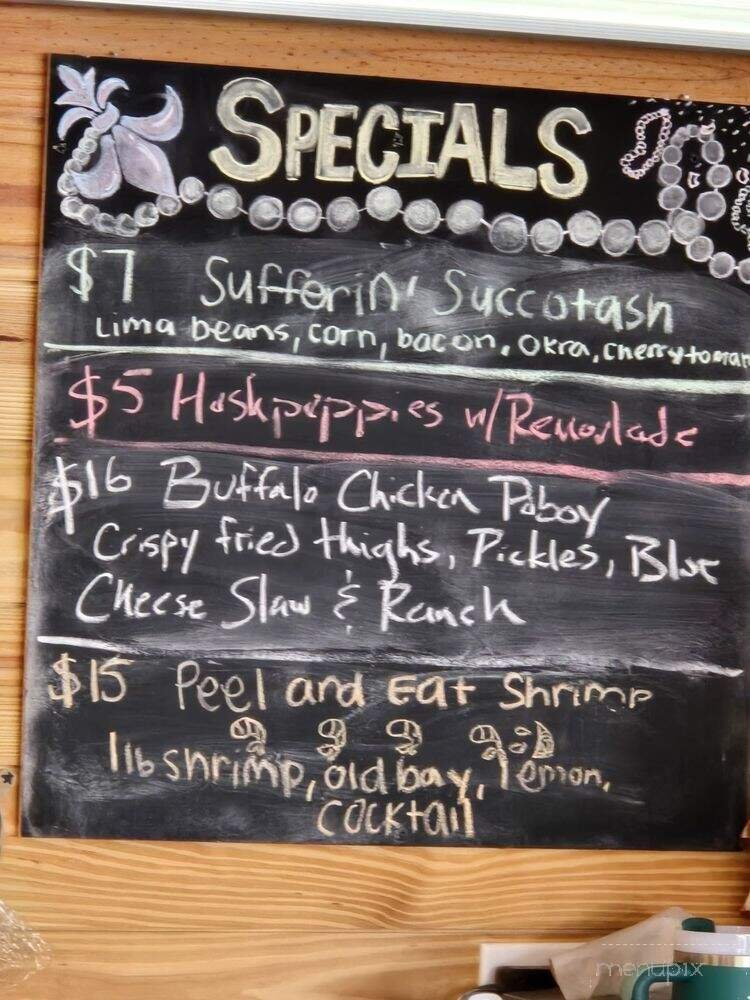 SPECIALS
$7 Sufferin' Succotash
Lima beans, corn, bacon, okra, cherry tomat
$5 Huskpuppies w/Remoulade
$16 Buffalo Chicken Poboy
Crispy fried thighs, Pickles, Blue
Cheese Slaw & Ranch
$15 Peel and Eat Shrimp
1 lb shrimp, old bay, lemon,
cocktail
menupix